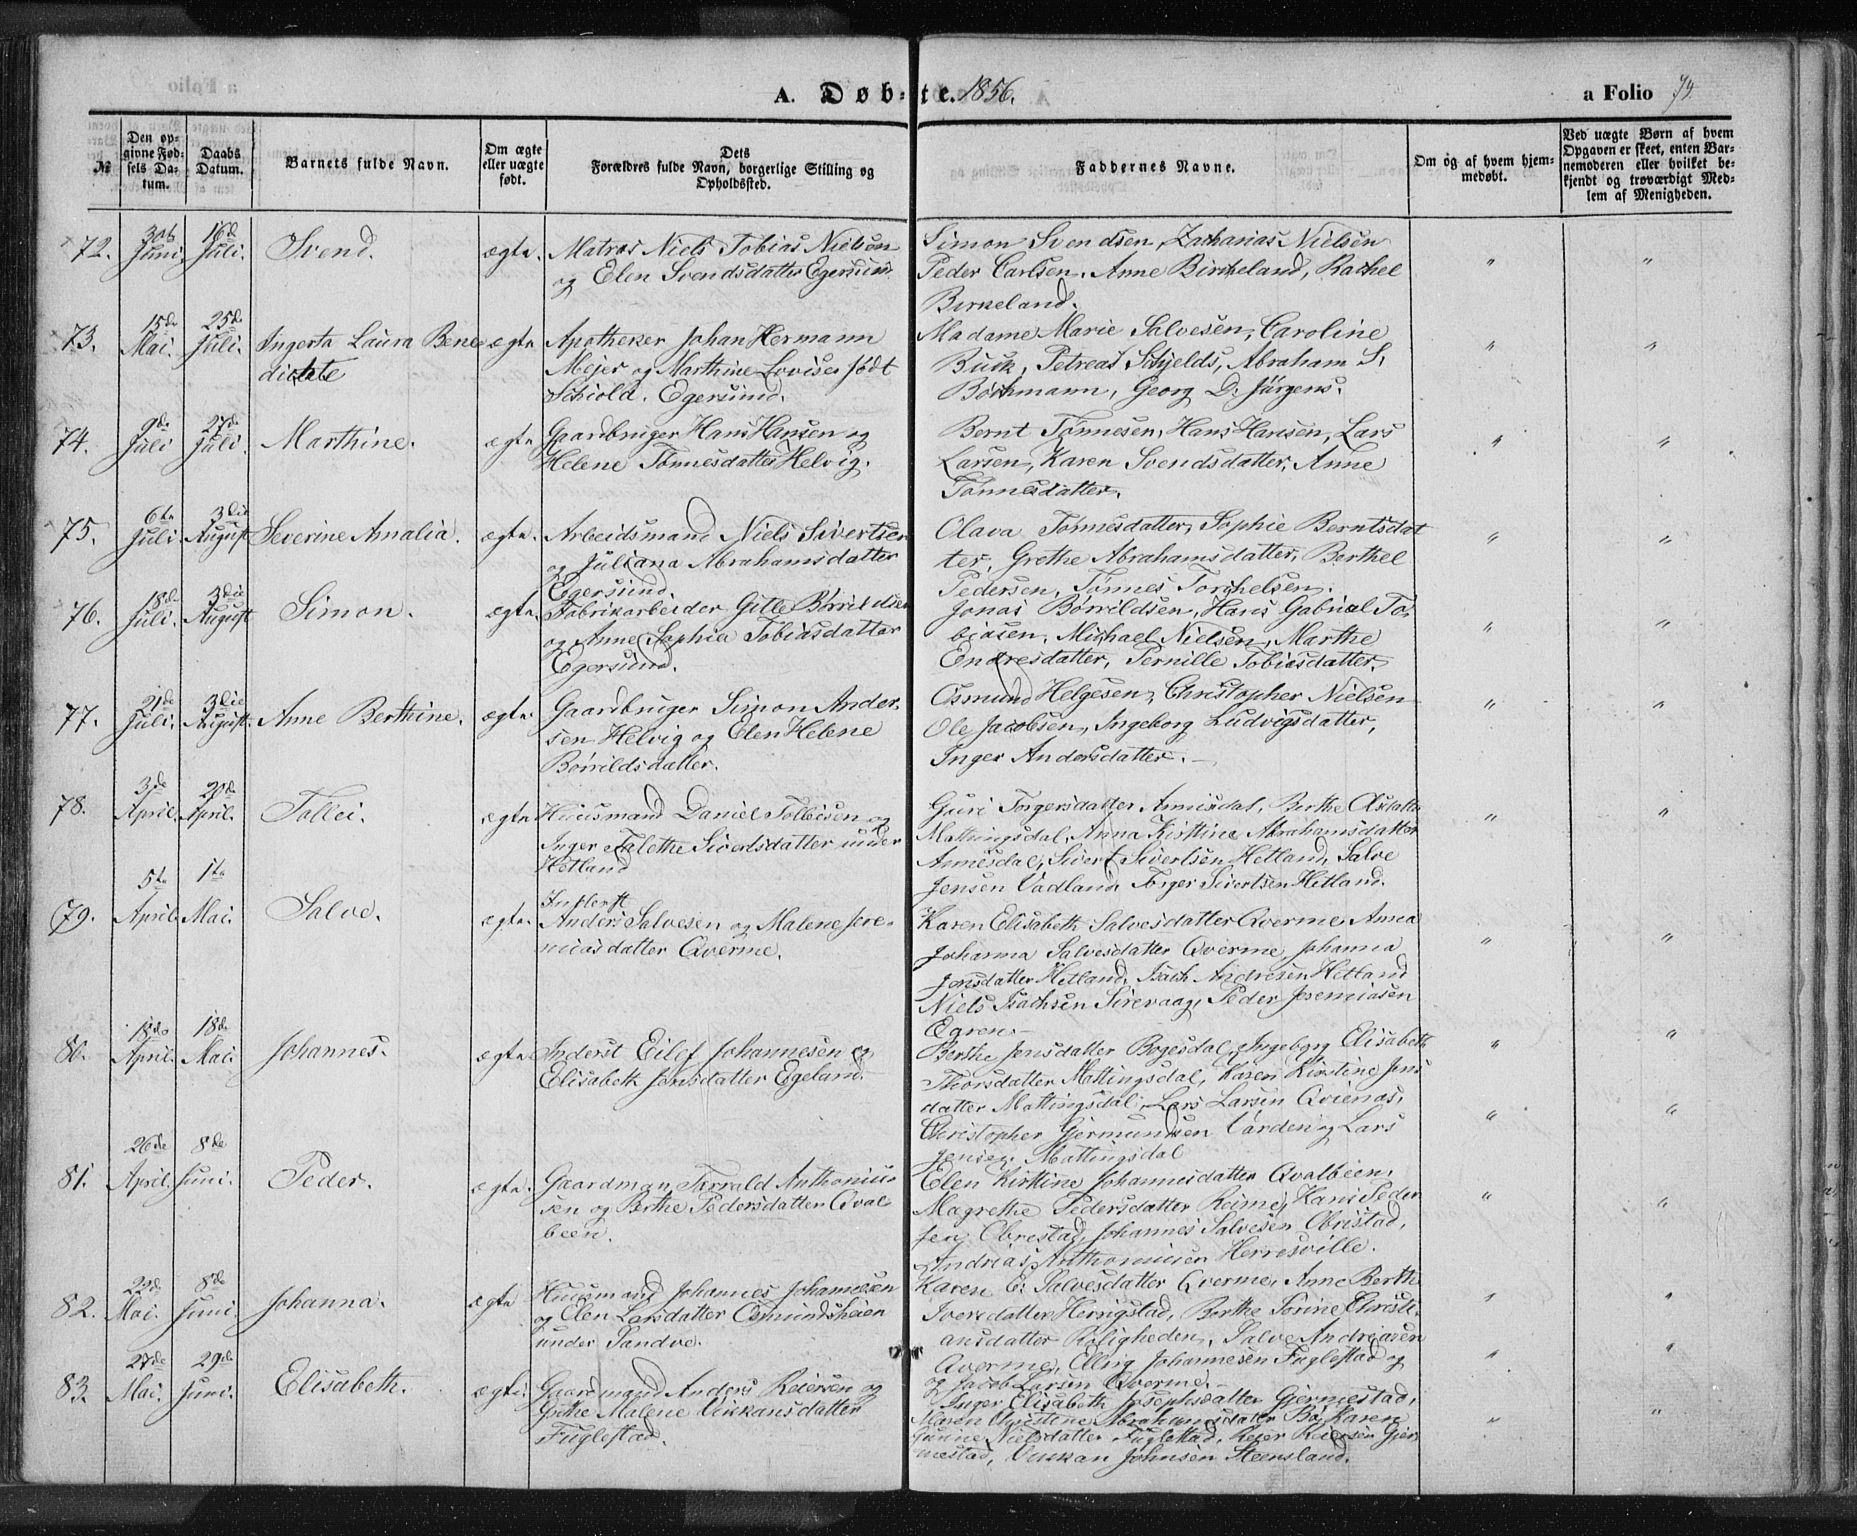 A. Døb-te. 1856. a Folio 74.
№
Den op-
givne Fød-
sels Da-
tum.
Daabs
Datum.
Barnets fulde Navn.
Om ægte
eller uægte
født.
Dets
Forældres fulde Navn, borgerlige Stilling og
Opholdssted.
Faddernes Navne.
Om og af hvem hjem-
medøbt.
Ved uægte Børn af hvem
Opgaven er skeet, enten Bar-
nemoderen eller hvilket be-
kjendt og troværdigt Med-
lem af Menigheden.
72. Juni. 16de Juli. Svend. ægte. Matros Niels Tobias Nielsen
og Elen Svendsdatter Egersund.
Simon Svendsen, Zacharias Nielsen
Peder Carlsen, Anne Bircheland, Rachel
Birkeland.
73. 15de Mai. 25de Juli. Ingerta Laura Bene-
dicte
ægte Apotheker Johan Hermann
Mejer og Marthine Lovise født
Schiold. Egersund.
Madame Marie Salvesen, Caroline
Buck, Petrea Schjelds, Abraham S.
Bochmann, Georg D. Jürgens.
74. 9de Juli 27de Juli. Marthine. ægte Gaardbruger Hans Hansen og
Helene Tønnesdatter Helvig.
Bernt Tønnesen, Hans Hansen, Lars
Larsen, Karen Svendsdatter, Anne
Tønnesdatter.
75. 6te Juli 3die August Severine Amalia. ægte. Arbeidsmand Niels Sivertsen
og Juliana Abrahamsdatter
Egersund.
Olava Tønnesdatter, Sophie Berntsdat
ter, Grethe Abrahamsdatter, Berthel
Pedersen, Tønnes Torchelsen.
76. 18de Juli. 3die August Simon. ægte. Fabrikarbeider Gitle Børrildsen
og Anne Sophia Tobiasdatter
Egersund.
Jonas Børrildsen, Hans Gabriel To-
biasen, Michael Nielsen, Marthe
Endresdatter, Pernille Tobiasdatter.
77. 21de Juli. 3die August. Anne Berthine. ægte. Gaardbruger Simon Ander-
sen Helvig og Elen Helene
Børrildsdatter.
Osmund Helgesen, Christopher Nielsen
Ole Jacobsen, Ingeborg Ludvigsdatter,
Inger Andersdatter.
78. 3de April. 20de April. Tollei. ægte Huusmand Daniel Tolleisen og
Inger Talethe Sivertsdatter under
Hetland
Guri Torgersdatter Annisdal, Berthe
Mattingsdal, Anna Kirstine Abrahamsdatter
Annesdal, Sivert Sivertsen Hetland, Salve
Jensen Vadland, Torger Sivertsen Hetland.
79. 5te April 1te Mai. Salve. ægte. Inderst
Anders Salvesen og Malene Jere-
miasdatter Qverme.
Karen Elisabeth Salvesdatter Qverme, Anna
Johanna Salvesdatter Qverme, Johanna
Jonsdatter Hetland, Isach Andresen Hetland
Niels Isachsen Sirevaag, Peder Jeremiasen
80. 18de April. 18de Mai Johannes. ægte Inderst Eilef Johannesen og
Elisabeth Jensdatter Egeland.
Berthe Jensdatter Bogesdal, Ingeborg Elisabeth
Thorsdatter Mattingsdal, Karen Kirstine Jens
datter Mattingsdal, Lars Larsen
Christopher Gjermundsen Varden og Lars
Jensen Mattingsdal
81. 26de April. 8de Juni. Peder. ægte. Gaardman Torrald Anthonius
sen og Berthe Pedersdatter Qval-
been.
Elen Kirstine Johannesdatter Qvalbeen,
Magrethe Pedersdatter Reime, Hans Peder
sen Obrestad, Johannes Salvesen Obrestad,
Andrias Anthoniusen
82. 22de Mai. 8de Juni. Johanna. ægte Huusmand Johannes Johannesen
og Elen Larsdatter Osmundsheien
under Sandve.
Karen E. Salvesdatter Qverme, Anne Berthe
Iversdatter Herrigstad, Berthe Torine Christi-
ansdatter Roligheden, Salve Andreasen
Qverme, Elling Johannesen Fuglestad og
og Jacob Larsen Qverme.
83. 27de Mai. 29de Juni. Elisabeth. ægte. Gaardmand Anders Reiersen og
Grethe Malene Vikkansdatter
Fuglestad.
Inger Elisabeth Josephsdatter Gjermestad,
Maren Christine Abrahamsdatter Bø, Karen
Gunine Nielsdatter Fuglestad, Reier Reiersen Gjer
mestad, Vikkan Johnsen Steensland.